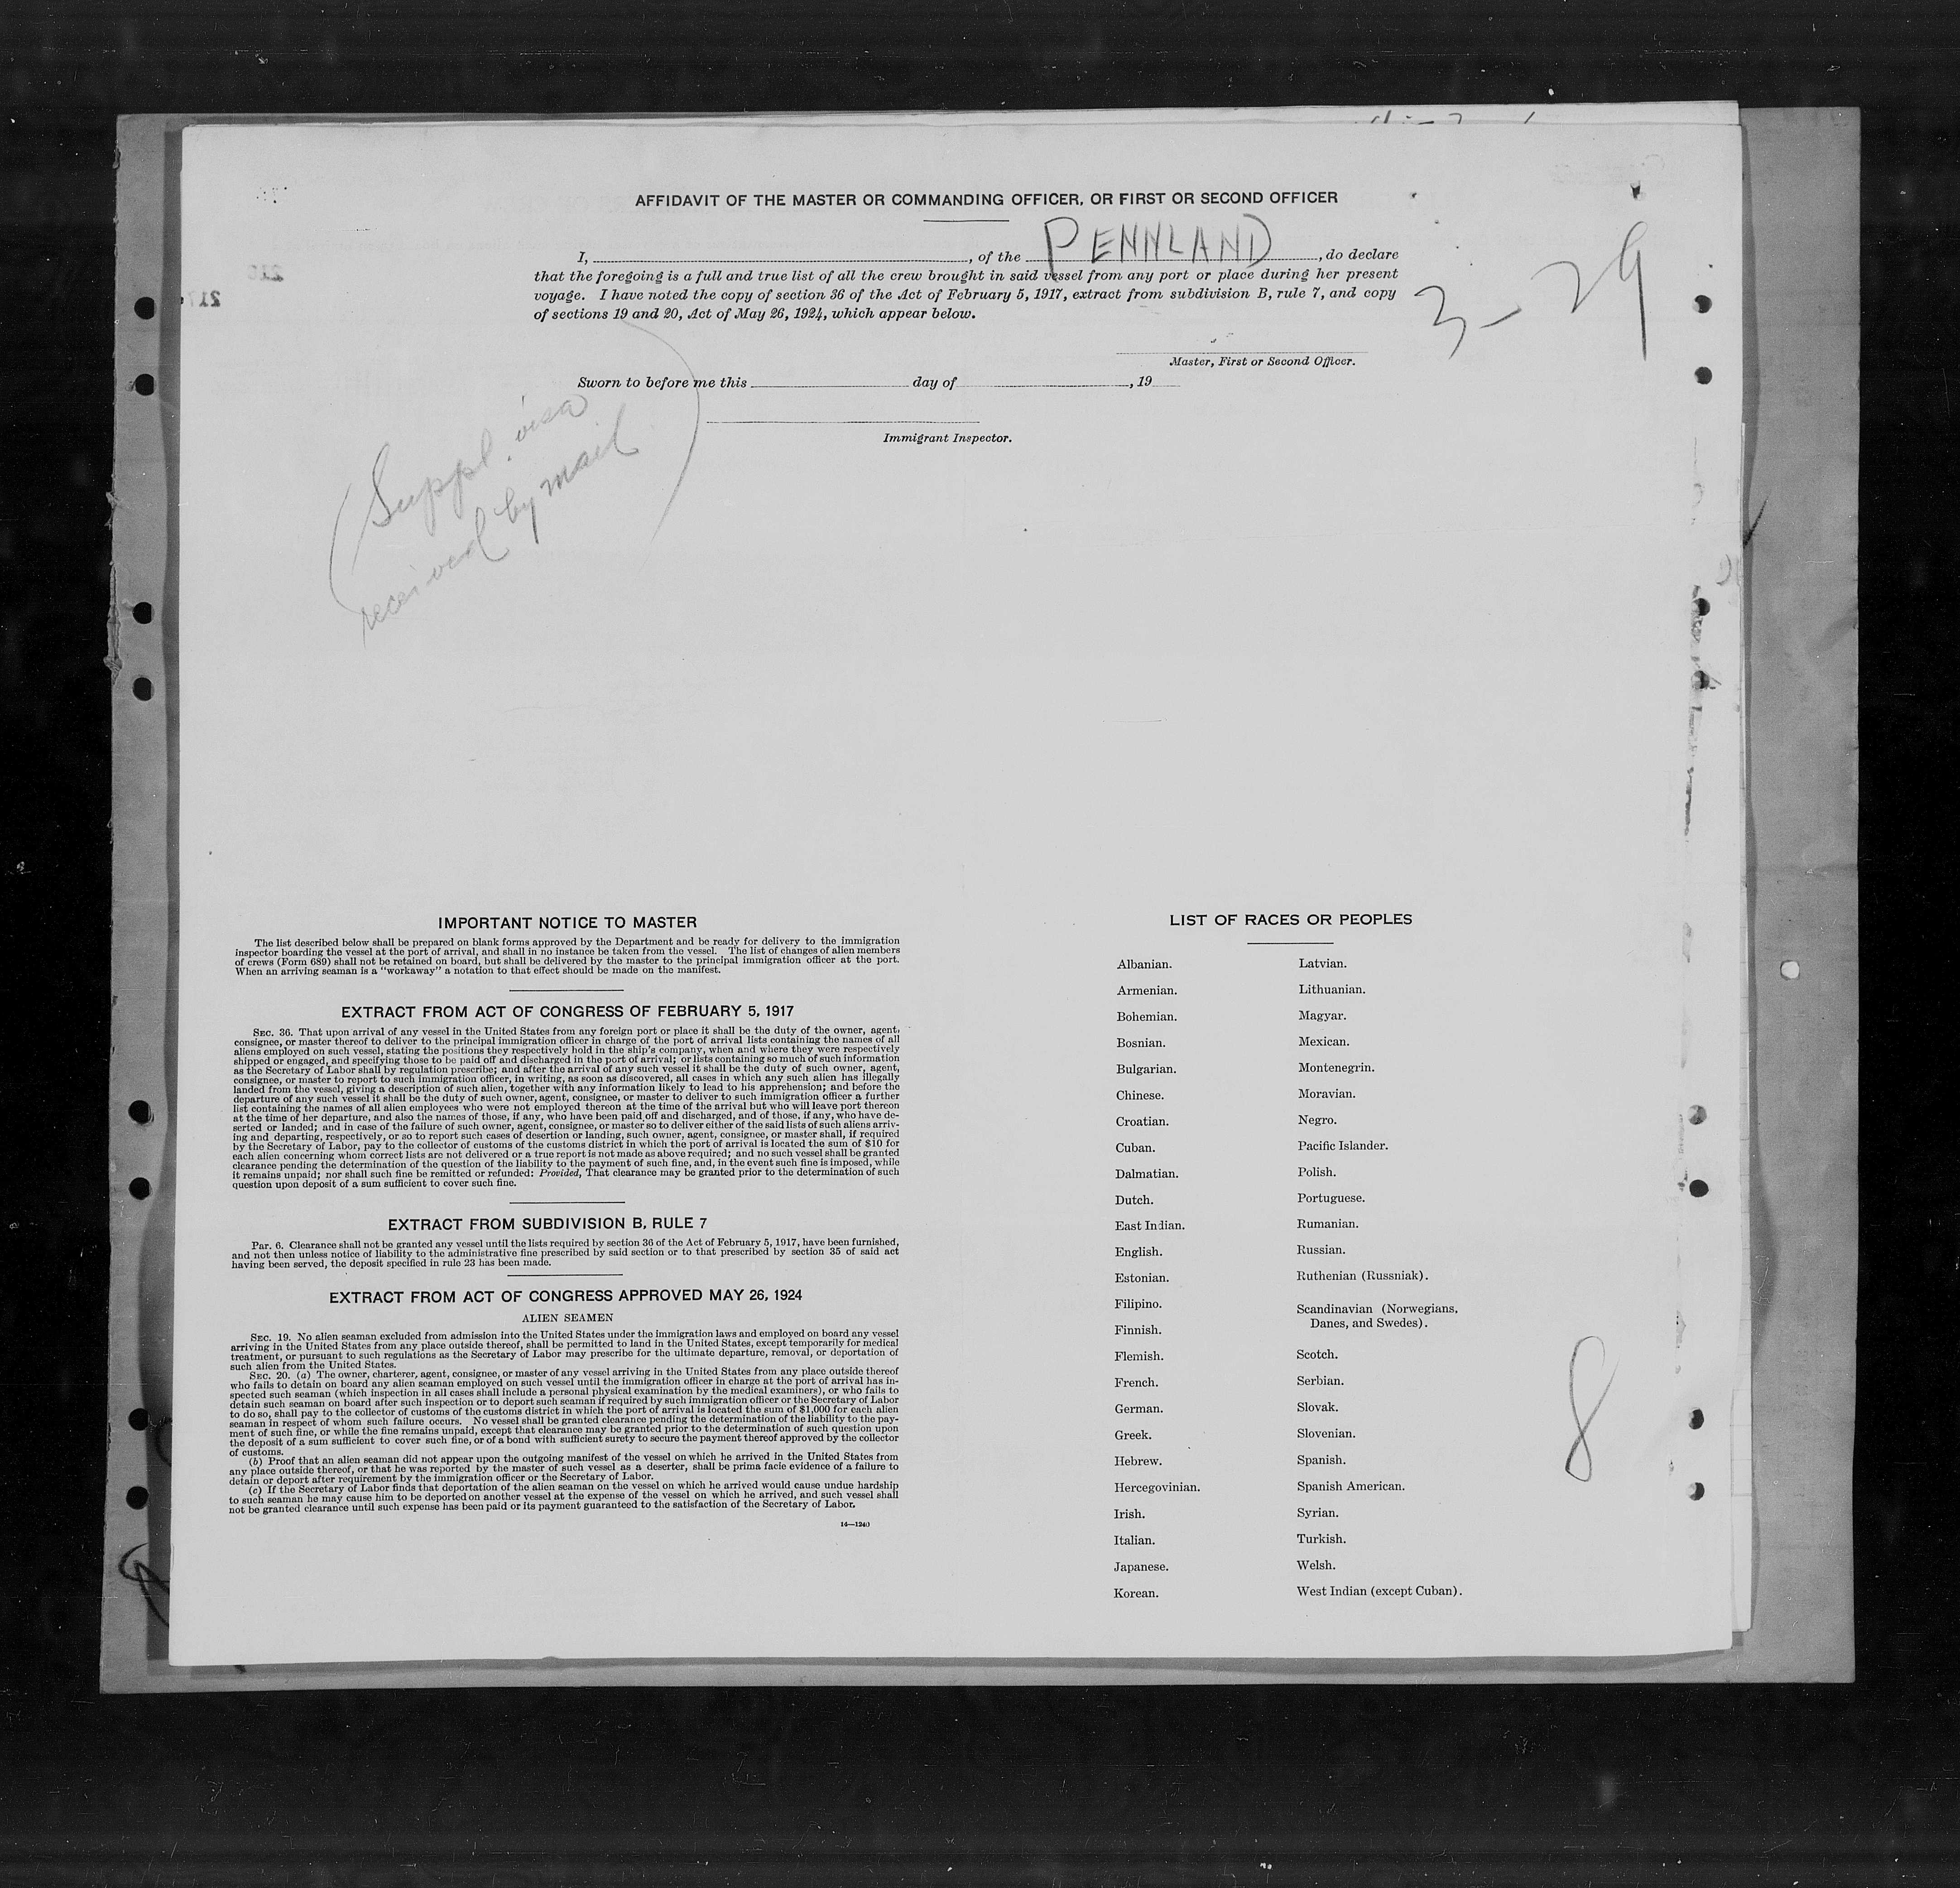 AFFIDAVIT OF THE MASTER OR COMMANDING OFFICER, OR FIRST OR SECOND OFFICER
I, , of the PENNLAND , do declare
that the foregoing is a full and true list of all the crew brought in said vessel from any port or place during her present
voyage. I have noted the copy of section 36 of the Act of February 5, 1917, extract from subdivision B, rule 7, and copy
of sections 19 and 20, Act of May 26, 1924, which appear below.
3 - 29
Master, First or Second Officer.
Sworn to before me this day of , 19
Immigrant Inspector.
(Suppl. visa
received by mail)
217
IMPORTANT NOTICE TO MASTER
The list described below shall be prepared on blank forms approved by the Department and be ready for delivery to the immigration
inspector boarding the vessel at the port of arrival, and shall in no instance be taken from the vessel. The list of changes of alien members
of crews (Form 689) shall not be retained on board, but shall be delivered by the master to the principal immigration officer at the port.
When an arriving seaman is a "workaway" a notation to that effect should be made on the manifest.
EXTRACT FROM ACT OF CONGRESS OF FEBRUARY 5, 1917
SEC. 36. That upon arrival of any vessel in the United States from any foreign port or place it shall be the duty of the owner, agent,
consignee, or master thereof to deliver to the principal immigration officer in charge of the port of arrival lists containing the names of all
aliens employed on such vessel, stating the positions they respectively hold in the ship's company, when and where they were respectively
shipped or engaged, and specifying those to be paid off and discharged in the port of arrival; or lists containing so much of such information
as the Secretary of Labor shall by regulation prescribe; and after the arrival of any such vessel it shall be the duty of such owner, agent,
consignee, or master to report to such immigration officer, in writing, as soon as discovered, all cases in which any such alien has illegally
landed from the vessel, giving a description of such alien, together with any information likely to lead to his apprehension; and before the
departure of any such vessel it shall be the duty of such owner, agent, consignee, or master to deliver to such immigration officer a further
list containing the names of all alien employees who were not employed thereon at the time of the arrival but who will leave port thereon
at the time of her departure, and also the names of those, if any, who have been paid off and discharged, and of those, if any, who have de-
serted or landed; and in case of the failure of such owner, agent, consignee, or master so to deliver either of the said lists of such aliens arriv-
ing and departing, respectively, or so to report such cases of desertion or landing, such owner, agent, consignee, or master shall, if required
by the Secretary of Labor, pay to the collector of customs of the customs district in which the port of arrival is located the sum of $10 for
each alien concerning whom correct lists are not delivered or a true report is not made as above required; and no such vessel shall be granted
clearance pending the determination of the question of the liability to the payment of such fine, and, in the event such fine is imposed, while
it remains unpaid; nor shall such fine be remitted or refunded: Provided, That clearance may be granted prior to the determination of such
question upon deposit of a sum sufficient to cover such fine.
EXTRACT FROM SUBDIVISION B, RULE 7
Par. 6. Clearance shall not be granted any vessel until the lists required by section 36 of the Act of February 5, 1917, have been furnished,
and not then unless notice of liability to the administrative fine prescribed by said section or to that prescribed by section 35 of said act
having been served, the deposit specified in rule 23 has been made.
EXTRACT FROM ACT OF CONGRESS APPROVED MAY 26, 1924
ALIEN SEAMEN
SEC. 19. No alien seaman excluded from admission into the United States under the immigration laws and employed on board any vessel
arriving in the United States from any place outside thereof, shall be permitted to land in the United States, except temporarily for medical
treatment, or pursuant to such regulations as the Secretary of Labor may prescribe for the ultimate departure, removal, or deportation of
such alien from the United States.
SEC. 20. (a) The owner, charterer, agent, consignee, or master of any vessel arriving in the United States from any place outside thereof
who fails to detain on board any alien seaman employed on such vessel until the immigration officer in charge at the port of arrival has in-
spected such seaman (which inspection in all cases shall include a personal physical examination by the medical examiners), or who fails to
detain such seaman on board after such inspection or to deport such seaman if required by such immigration officer or the Secretary of Labor
to do so, shall pay to the collector of customs of the customs district in which the port of arrival is located the sum of $1,000 for each alien
seaman in respect of whom such failure occurs. No vessel shall be granted clearance pending the determination of the liability to the pay-
ment of such fine, or while the fine remains unpaid, except that clearance may be granted prior to the determination of such question upon
the deposit of a sum sufficient to cover such fine, or of a bond with sufficient surety to secure the payment thereof approved by the collector
of customs.
(b) Proof that an alien seaman did not appear upon the outgoing manifest of the vessel on which he arrived in the United States from
any place outside thereof, or that he was reported by the master of such vessel as a deserter, shall be prima facie evidence of a failure to
detain or deport after requirement by the immigration officer or the Secretary of Labor.
(c) If the Secretary of Labor finds that deportation of the alien seaman on the vessel on which he arrived would cause undue hardship
to such seaman he may cause him to be deported on another vessel at the expense of the vessel on which he arrived, and such vessel shall
not be granted clearance until such expense has been paid or its payment guaranteed to the satisfaction of the Secretary of Labor.
14—1240
LIST OF RACES OR PEOPLES
Albanian.
Armenian.
Bohemian.
Bosnian.
Bulgarian.
Chinese.
Croatian.
Cuban.
Dalmatian.
Dutch.
East Indian.
English.
Estonian.
Filipino.
Finnish.
Flemish.
French.
German.
Greek.
Hebrew.
Hercegovinian.
Irish.
Italian.
Japanese.
Korean.
Latvian.
Lithuanian.
Magyar.
Mexican.
Montenegrin.
Moravian.
Negro.
Pacific Islander.
Polish.
Portuguese.
Rumanian.
Russian.
Ruthenian (Russniak).
Scandinavian (Norwegians,
Danes, and Swedes).
Scotch.
Serbian.
Slovak.
Slovenian.
Spanish.
Spanish American.
Syrian.
Turkish.
Welsh.
West Indian (except Cuban).
8